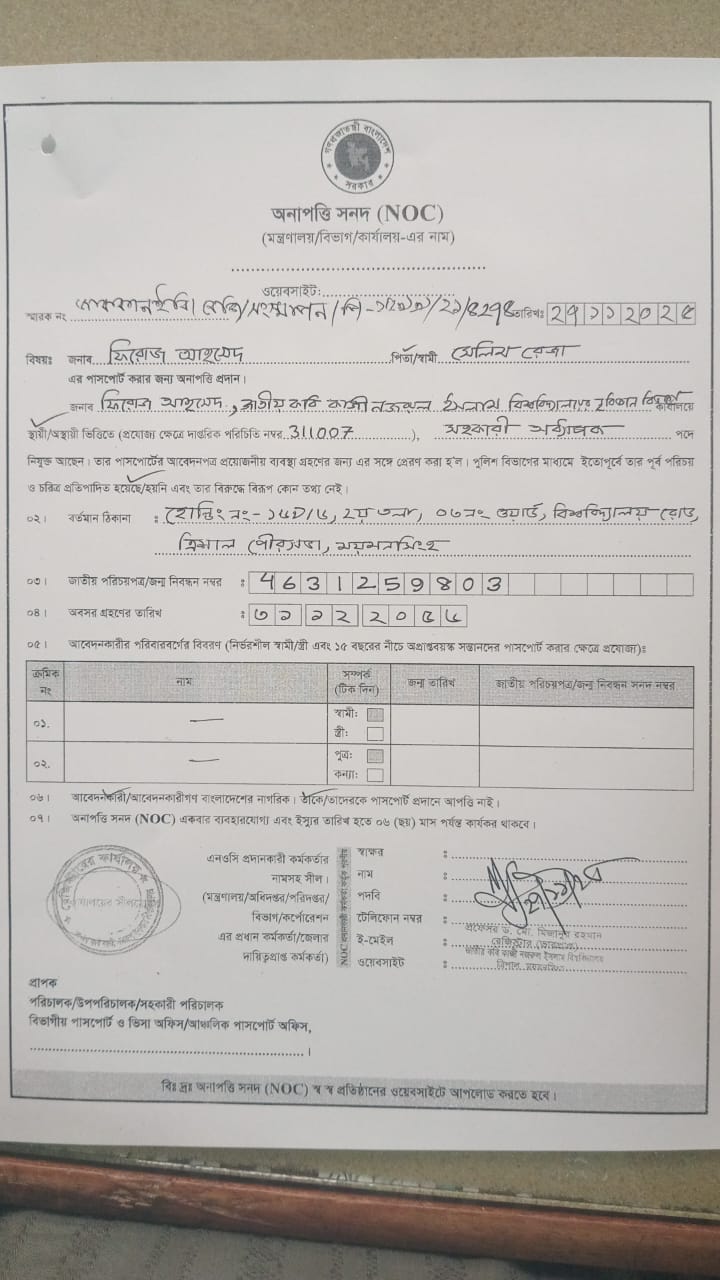 গণপ্রজাতন্ত্রী বাংলাদেশ
সরকার
অনাপত্তি সনদ (NOC)
(মন্ত্রণালয়/বিভাগ/কার্যালয়-এর নাম)
ওয়েবসাইট:
স্মারক নং তারিখঃ ২৭১১২০২৫
বিষয়ঃ জনাব ফিরোজ আহমেদ পিতা/স্বামী সেলিম রেজা
এর পাসপোর্ট করার জন্য অনাপত্তি প্রদান।
জনাব ফিরোজ আহমেদ, জাতীয় কবি কাজী নজরুল ইসলাম বিশ্ববিদ্যালয়ের কার্যালয়ে
স্থায়ী/অস্থায়ী ভিত্তিতে (প্রযোজ্য ক্ষেত্রে দাপ্তরিক পরিচিতি নম্বর 311007), সহকারী অধ্যাপক পদে
নিযুক্ত আছেন। তার পাসপোর্টের আবেদনপত্র প্রয়োজনীয় ব্যবস্থা গ্রহণের জন্য এর সঙ্গে প্রেরণ করা হ'ল। পুলিশ বিভাগের মাধ্যমে ইতোপূর্বে তার পূর্ব পরিচয়
ও চরিত্র প্রতিপাদিত হয়েছে/হয়নি এবং তার বিরুদ্ধে বিরূপ কোন তথ্য নেই।
০২। বর্তমান ঠিকানা : হোল্ডিং নং- ২য় তলা, ০৬নং ওয়ার্ড, বিশ্ববিদ্যালয় রোড,
ত্রিশাল পৌরসভা, ময়মনসিংহ
০৩। জাতীয় পরিচয়পত্র/জন্ম নিবন্ধন নম্বর : 4631259803
০৪। অবসর গ্রহণের তারিখ :
০৫। আবেদনকারীর পরিবারবর্গের বিবরণ (নির্ভরশীল স্বামী/স্ত্রী এবং ১৫ বছরের নীচে অপ্রাপ্তবয়স্ক সন্তানদের পাসপোর্ট করার ক্ষেত্রে প্রযোজ্য)ঃ
ক্রমিক নং নাম সম্পর্ক (টিক দিন) জন্ম তারিখ জাতীয় পরিচয়পত্র/জন্ম নিবন্ধন সনদ নম্বর
০১. — স্বামী:
স্ত্রী:
০২. — পুত্র:
কন্যা:
০৬। আবেদনকারী/আবেদনকারীগণ বাংলাদেশের নাগরিক। তাকে/তাদেরকে পাসপোর্ট প্রদানে আপত্তি নাই।
০৭। অনাপত্তি সনদ (NOC) একবার ব্যবহারযোগ্য এবং ইস্যুর তারিখ হতে ০৬ (ছয়) মাস পর্যন্ত কার্যকর থাকবে।
এনওসি প্রদানকারী কর্মকর্তার স্বাক্ষর :
নামসহ সীল। নাম :
(মন্ত্রণালয়/অধিদপ্তর/পরিদপ্তর/ পদবি :
বিভাগ/কর্পোরেশন টেলিফোন নম্বর :
এর প্রধান কর্মকর্তা/জেলার ই-মেইল :
দায়িত্বপ্রাপ্ত কর্মকর্তা) ওয়েবসাইট :
প্রফেসর ড. মো. মিজানুর রহমান
রেজিস্ট্রার (ভারপ্রাপ্ত)
জাতীয় কবি কাজী নজরুল ইসলাম বিশ্ববিদ্যালয়
ত্রিশাল, ময়মনসিংহ
প্রাপক
পরিচালক/উপপরিচালক/সহকারী পরিচালক
বিভাগীয় পাসপোর্ট ও ভিসা অফিস/আঞ্চলিক পাসপোর্ট অফিস,
বিঃ দ্রঃ অনাপত্তি সনদ (NOC) স্ব স্ব প্রতিষ্ঠানের ওয়েবসাইটে আপলোড করতে হবে।